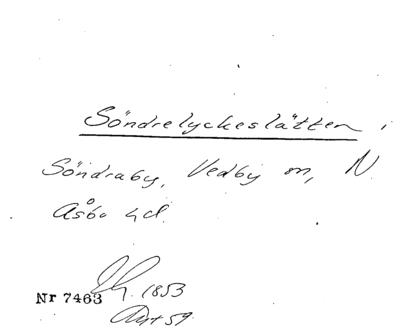 Söndrelyckeslätten i
Söndraby, Vedby sn, N.
Åsbo hd.
1853
Nr 7463
Akt 59